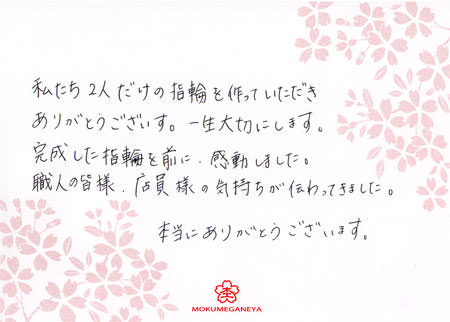 私たち2人だけの指輪を作っていただき
ありがとうございます。一生大切にします。
完成した指輪を前に、感動しました。
職人の皆様、店員様の気持ちが伝わってきました。
本当にありがとうございます。
MOKUMEGANEYA